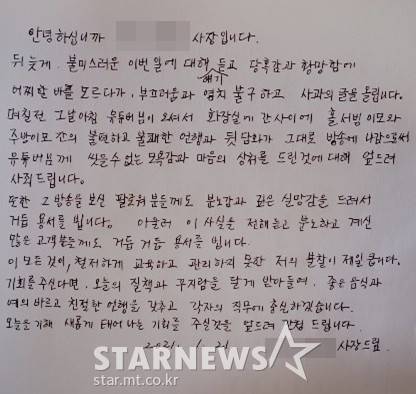 안녕하십니까 사장입니다.
뒤늦게. 불미스러운 이번일에 대해 얘기 듣고 당혹감과 황망함에
어찌할 바를 모르다가, 부끄러움과 염치 불구하고 사과의 글을 올립니다.
며칠전 그날아침 유튜버님이 오셔서 화장실에 간 사이에 홀서빙 이모와
주방이모 간의 불편하고 불쾌한 언행과 뒷담화가 그대로 방송에 나감으로써
유튜버님께 씻을수 없는 모욕감과 마음의 상처를 드린것에 대해 엎드려
사죄드립니다.
또한 그 방송을 보신 팔로워 분들께도 분노감과 깊은 실망감을 드려서
거듭 용서를 빕니다. 아울러 이 사실을 전해듣고 분노하고 계신
많은 고객분들께도 거듭 거듭 용서를 빕니다.
이 모든것이, 철저하게 교육하고 관리하지 못한 저의 불찰이 제일 큽니다.
기회를 주신다면, 오늘의 질책과 꾸지람을 달게 받아들여, 좋은음식과
예의 바르고 친절한 언행을 갖추고 각자의 직무에 충실하겠습니다.
오늘을 기해 새롭게 태어나는 기회를 주실것을 엎드려 간청 드립니다.
2021. 1. 21 사장드림
STARNEWS
star.mt.co.kr